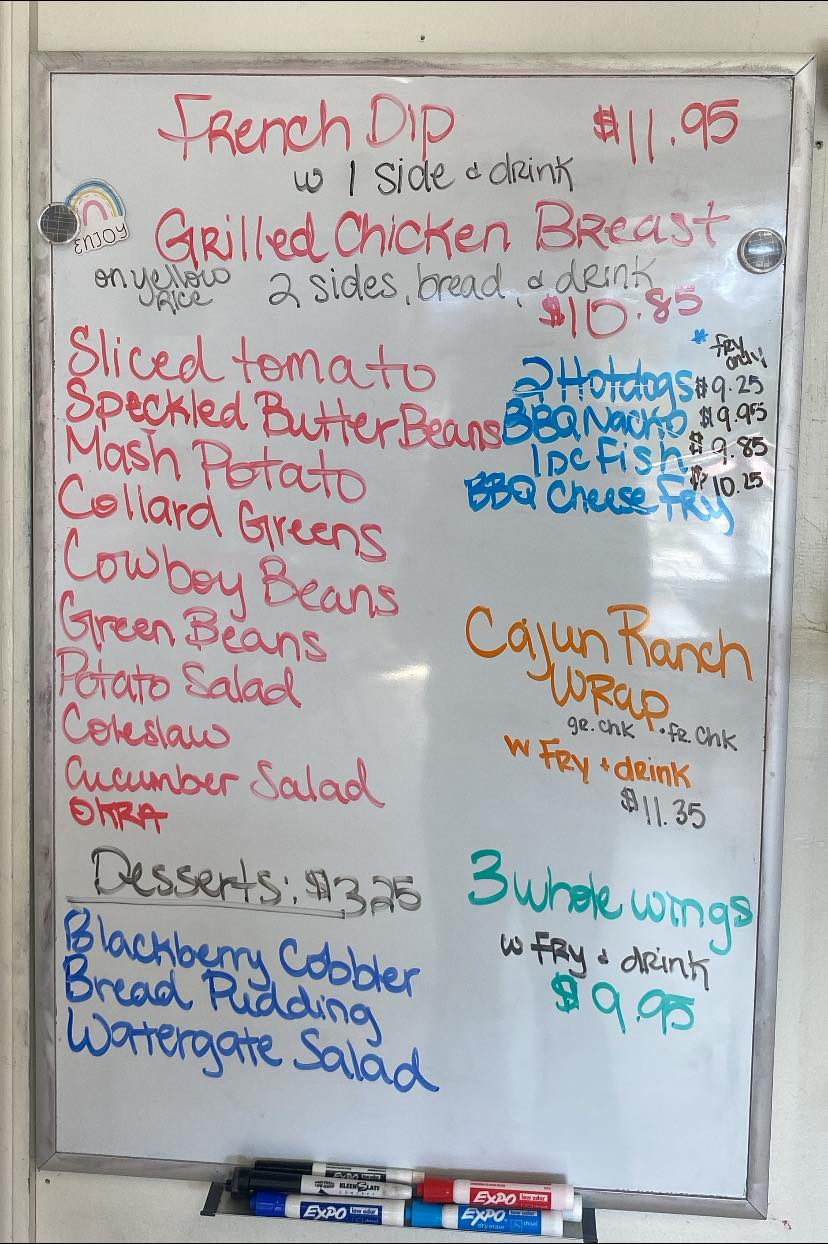 French Dip $11.95
w 1 side & drink
ENJOY
Grilled Chicken Breast
on yellow rice 2 sides, bread, & drink
$10.85
Sliced tomato
Speckled Butter Beans
Mash Potato
Collard Greens
Cowboy Beans
Green Beans
Potato Salad
Coleslaw
Cucumber Salad
OKRA
* fry only
2 Hotdogs $9.25
BBQ Nacho $9.95
1 pc Fish $9.85
BBQ Cheese Fry $10.25
Cajun Ranch
Wrap
gr. chk • fr. chk
w Fry + drink
$11.35
Desserts: $3.25
Blackberry Cobbler
Bread Pudding
Wattergate Salad
3 whole wings
w Fry & drink
$9.95
KLEENSLATE
EXPO low odor
EXPO low odor
EXPO dry erase chisel